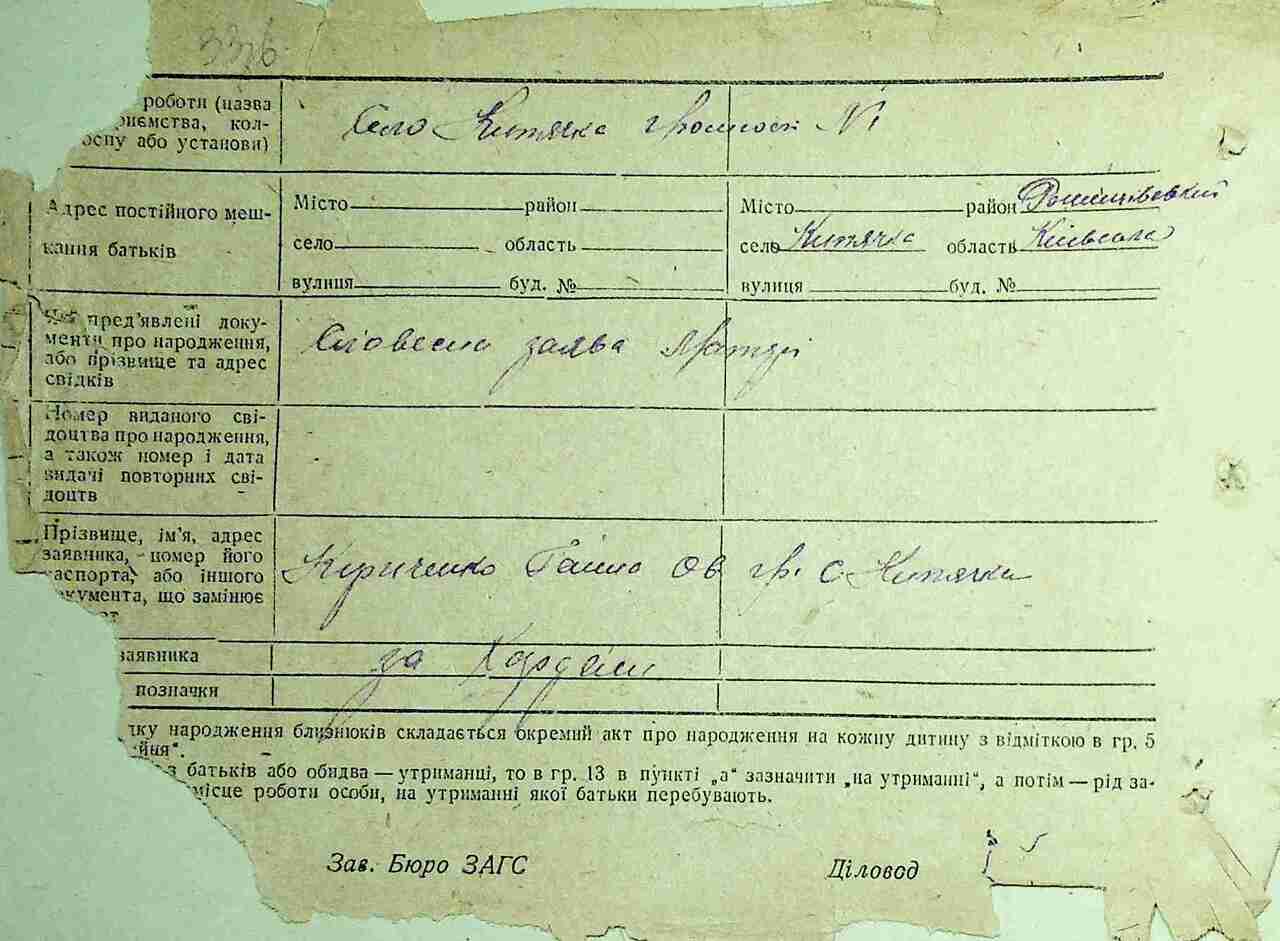 3326
роботи (назва
риємства, кол-
оспу або установи)
Село Житячка громгосп №1
Адрес постійного меш-
кання батьків
Місто район
село область
вулиця буд. №
Місто район
село Китячка область Київська
вулиця буд. №
пред'явлені доку-
менти про народження,
або прізвище та адрес
свідків
Словесна заява Матері
Номер виданого сві-
доцтва про народження,
а також номер і дата
видачі повторних сві-
доцтв
Прізвище, ім'я, адрес
заявника, номер його
паспорта, або іншого
документа, що замінює
Кириченко Ганна гр. с.
заявника
за
позначки
дку народження близнюків складається окремий акт про народження на кожну дитину з відміткою в гр. 5
йня".
з батьків або обидва — утриманці, то в гр. 13 в пункті „а" зазначити „на утриманні", а потім — рід за-
місце роботи особи, на утриманні якої батьки перебувають.
Зав. Бюро ЗАГС
Діловод